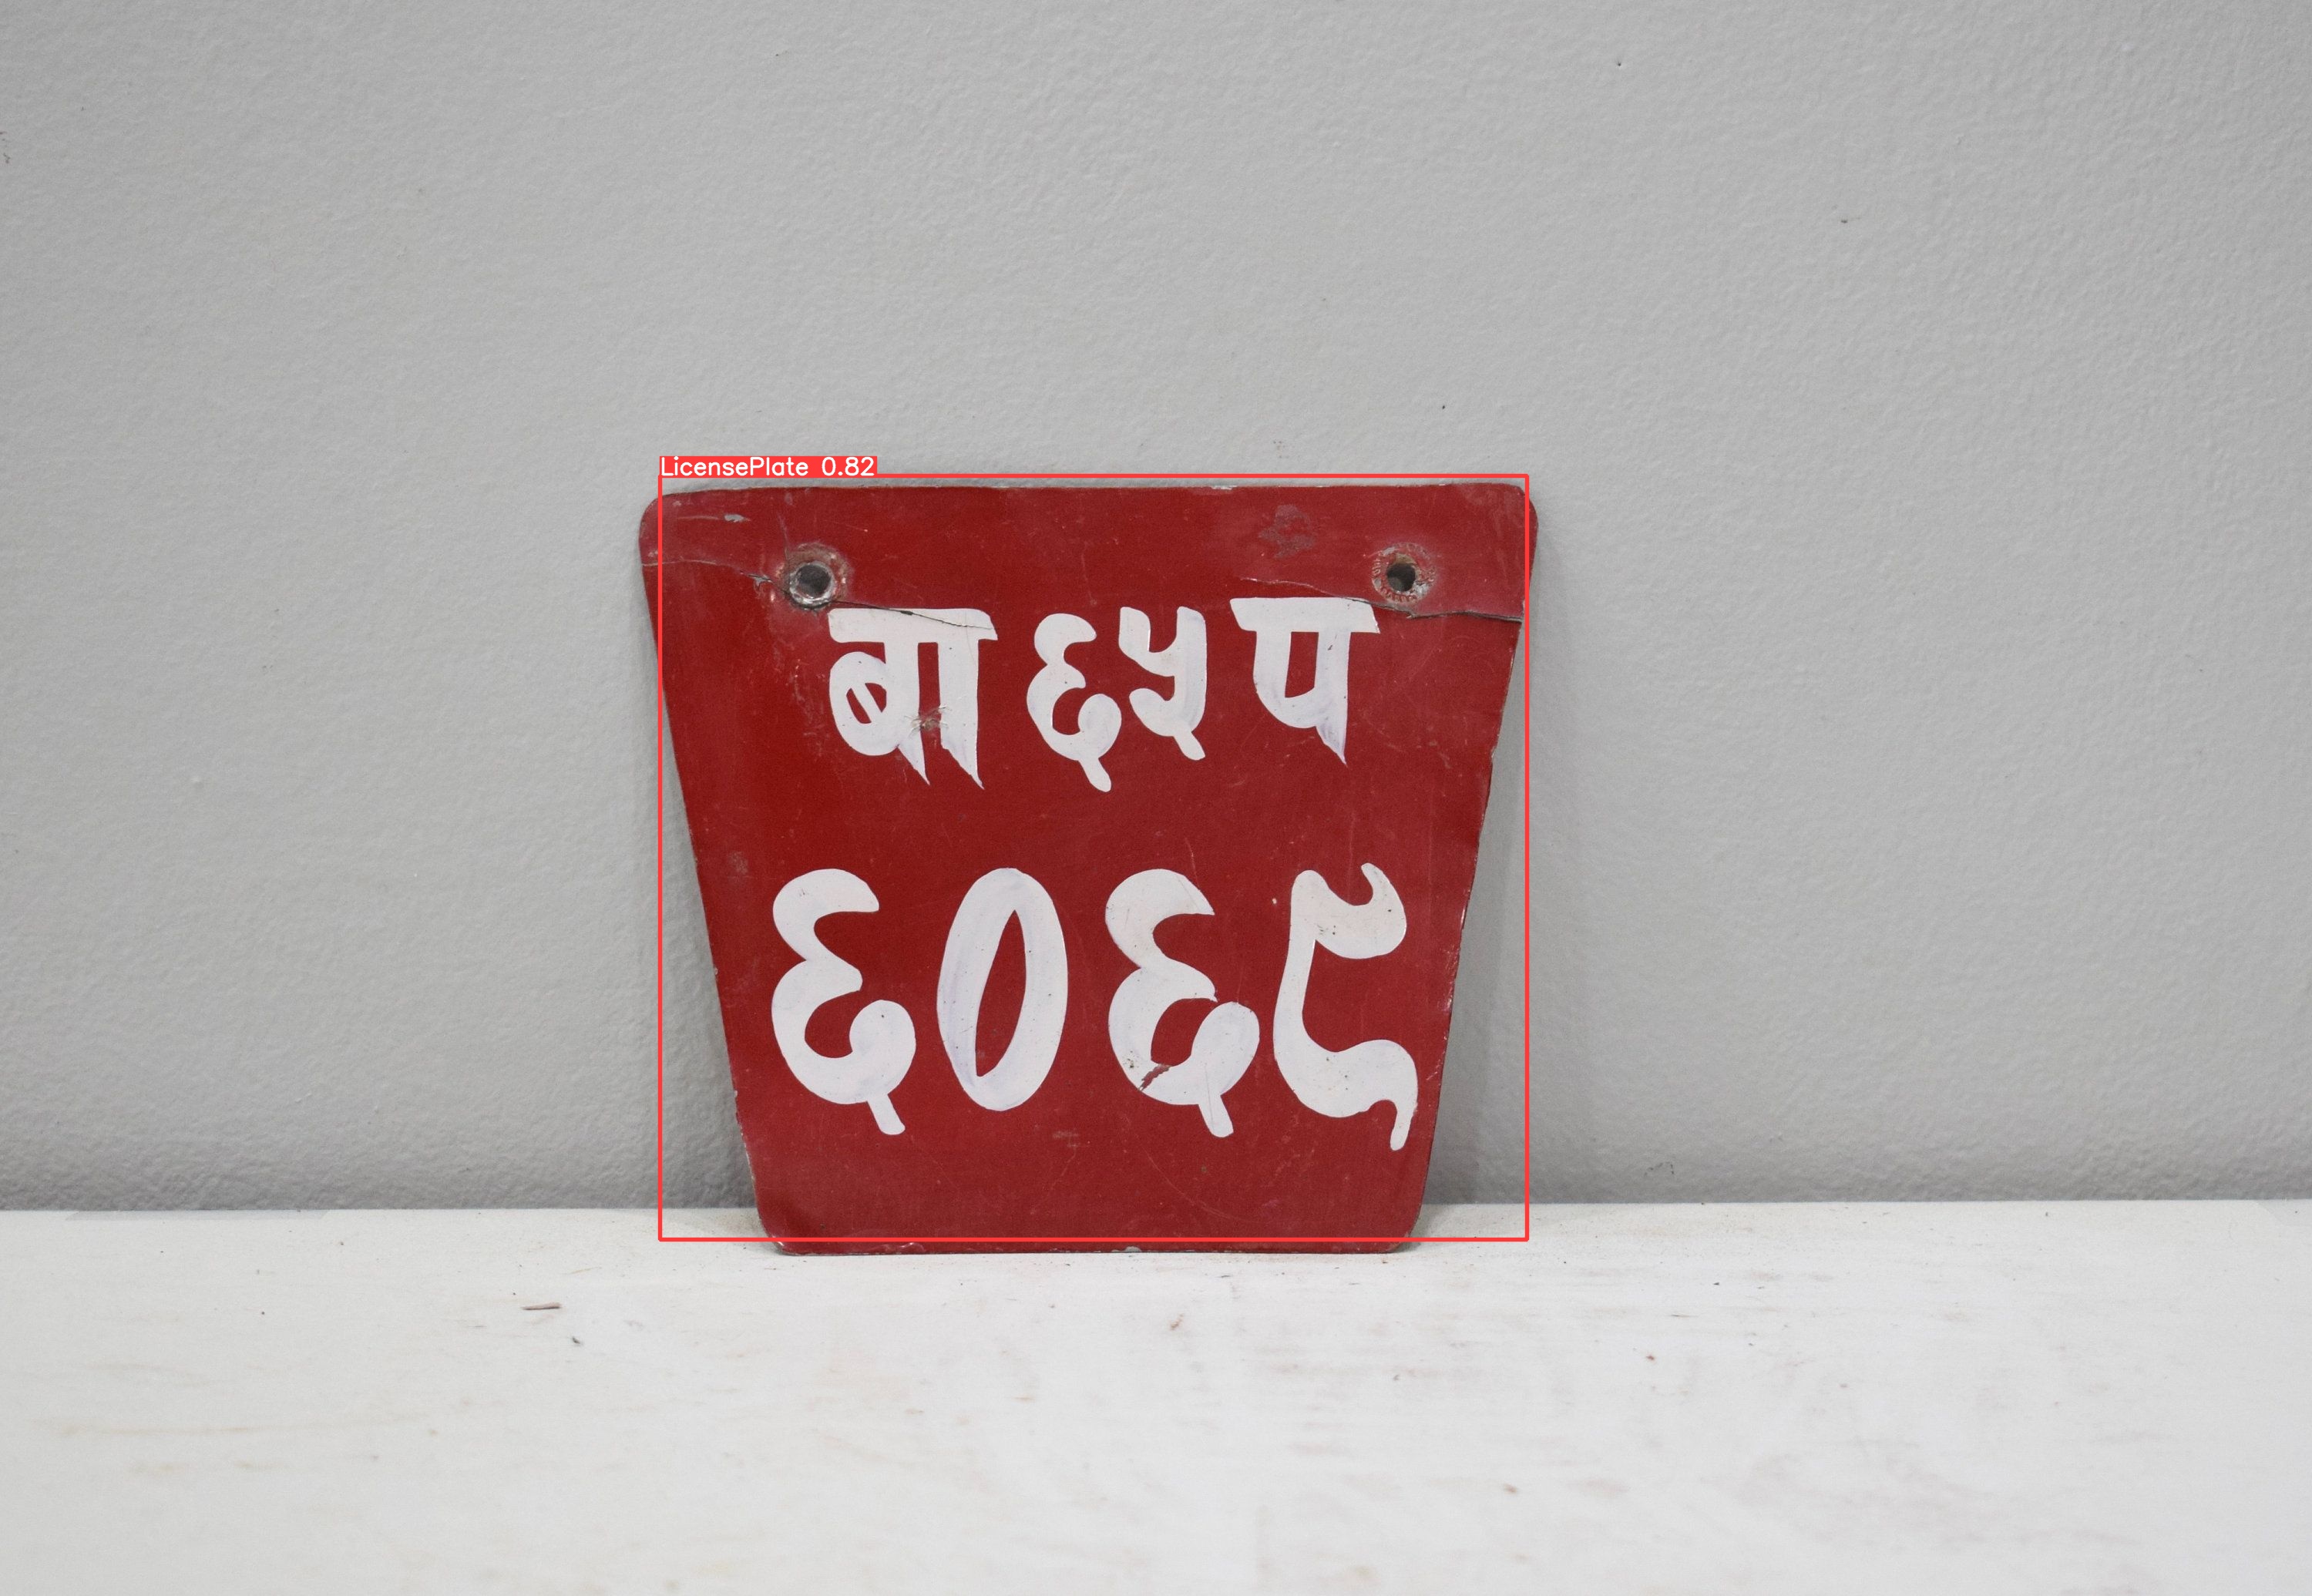 LicensePlate 0.82
बा ६५ प
६०६९